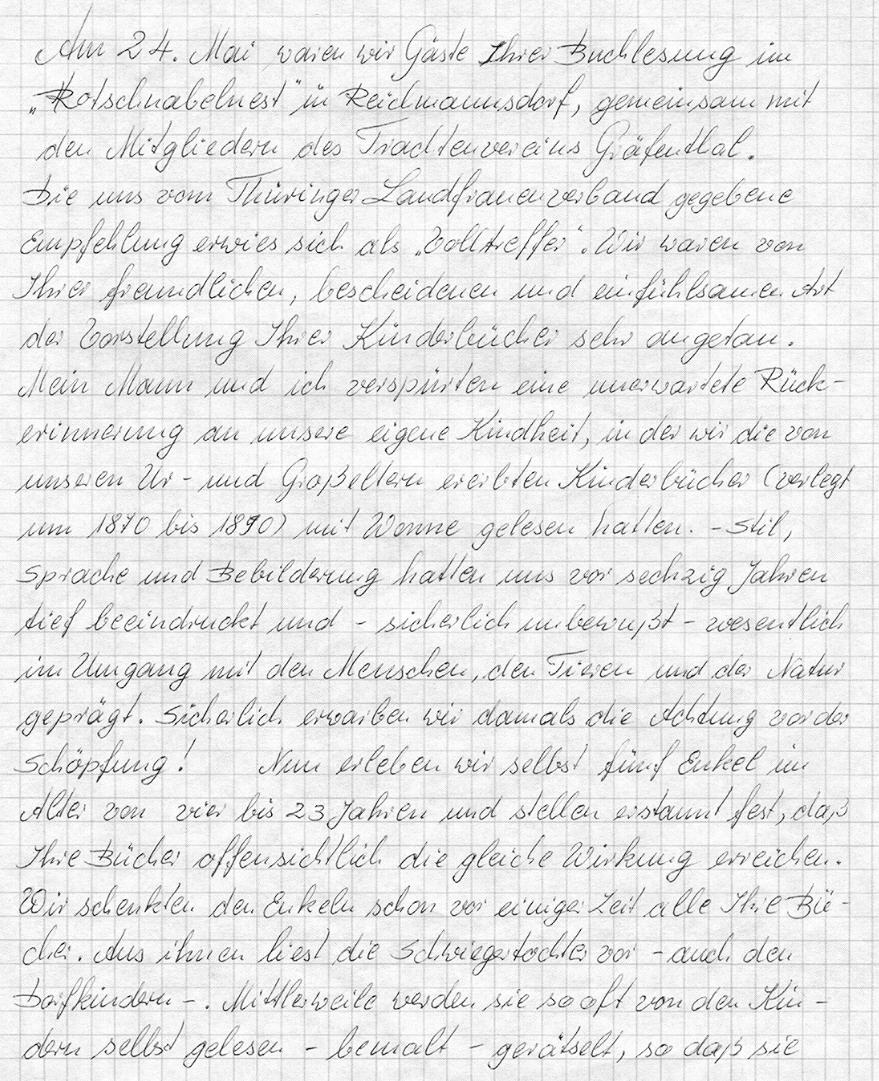 Am 24. Mai waren wir Gäste Ihrer Buchlesung im
„Rotschnabelnest" in Reichmannsdorf, gemeinsam mit
den Mitgliedern des Trachtenvereins Gräfenthal.
Die uns vom Thüringer Landfrauenverband gegebene
Empfehlung erwies sich als „Volltreffer". Wir waren von
Ihrer freundlichen, bescheidenen und einfühlsamen Art
der Vorstellung Ihrer Kinderbücher sehr angetan.
Mein Mann und ich verspürten eine unerwartete Rück-
erinnerung an unsere eigene Kindheit, in der wir die von
unseren Ur- und Großeltern ererbten Kinderbücher (verlegt
um 1870 bis 1890) mit Wonne gelesen hatten. - Stil,
Sprache und Bebilderung hatten uns vor sechzig Jahren
tief beeindruckt und - sicherlich unbewußt - wesentlich
im Umgang mit den Menschen, den Tieren und der Natur
geprägt. Sicherlich erwarben wir damals die Achtung vor der
Schöpfung! Nun erleben wir selbst fünf Enkel im
Alter von vier bis 23 Jahren und stellen erstaunt fest, daß
Ihre Bücher offensichtlich die gleiche Wirkung erreichen.
Wir schenkten den Enkeln schon vor einiger Zeit alle Ihre Bü-
cher. Aus ihnen liest die Schwiegertochter vor - auch den
Dorfkindern -. Mittlerweile werden sie so oft von den Kin-
dern selbst gelesen - bemalt - gerätselt, so daß sie